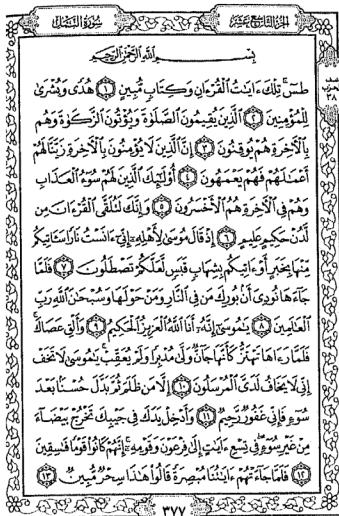 الجزء التاسع عشر سورة النمل
بسم الله الرحمن الرحيم
طسٓ تِلْكَ ءَايَٰتُ ٱلْقُرْءَانِ وَكِتَابٍ مُّبِينٍ ١ هُدًى وَبُشْرَىٰ
لِلْمُؤْمِنِينَ ٢ ٱلَّذِينَ يُقِيمُونَ ٱلصَّلَوٰةَ وَيُؤْتُونَ ٱلزَّكَوٰةَ وَهُم
بِٱلْءَاخِرَةِ هُمْ يُوقِنُونَ ٣ إِنَّ ٱلَّذِينَ لَا يُؤْمِنُونَ بِٱلْءَاخِرَةِ زَيَّنَّا لَهُمْ
أَعْمَٰلَهُمْ فَهُمْ يَعْمَهُونَ ٤ أُو۟لَٰٓئِكَ ٱلَّذِينَ لَهُمْ سُوٓءُ ٱلْعَذَابِ
وَهُمْ فِى ٱلْءَاخِرَةِ هُمُ ٱلْأَخْسَرُونَ ٥ وَإِنَّكَ لَتُلَقَّى ٱلْقُرْءَانَ مِن
لَّدُنْ حَكِيمٍ عَلِيمٍ ٦ إِذْ قَالَ مُوسَىٰ لِأَهْلِهِۦٓ إِنِّىٓ ءَانَسْتُ نَارًا سَـَٔاتِيكُم
مِّنْهَا بِخَبَرٍ أَوْ ءَاتِيكُم بِشِهَابٍ قَبَسٍ لَّعَلَّكُمْ تَصْطَلُونَ ٧ فَلَمَّا
جَآءَهَا نُودِىَ أَنۢ بُورِكَ مَن فِى ٱلنَّارِ وَمَنْ حَوْلَهَا وَسُبْحَٰنَ ٱللَّهِ رَبِّ
ٱلْعَٰلَمِينَ ٨ يَٰمُوسَىٰٓ إِنَّهُۥٓ أَنَا ٱللَّهُ ٱلْعَزِيزُ ٱلْحَكِيمُ ٩ وَأَلْقِ عَصَاكَ
فَلَمَّا رَءَاهَا تَهْتَزُّ كَأَنَّهَا جَآنٌّ وَلَّىٰ مُدْبِرًا وَلَمْ يُعَقِّبْ يَٰمُوسَىٰ لَا تَخَفْ
إِنِّى لَا يَخَافُ لَدَىَّ ٱلْمُرْسَلُونَ ١٠ إِلَّا مَن ظَلَمَ ثُمَّ بَدَّلَ حُسْنًۢا بَعْدَ
سُوٓءٍ فَإِنِّى غَفُورٌ رَّحِيمٌ ١١ وَأَدْخِلْ يَدَكَ فِى جَيْبِكَ تَخْرُجْ بَيْضَآءَ
مِنْ غَيْرِ سُوٓءٍ فِى تِسْعِ ءَايَٰتٍ إِلَىٰ فِرْعَوْنَ وَقَوْمِهِۦٓ إِنَّهُمْ كَانُوا۟ قَوْمًا فَٰسِقِينَ
١٢ فَلَمَّا جَآءَتْهُمْ ءَايَٰتُنَا مُبْصِرَةً قَالُوا۟ هَٰذَا سِحْرٌ مُّبِينٌ ١٣
٣٧٧